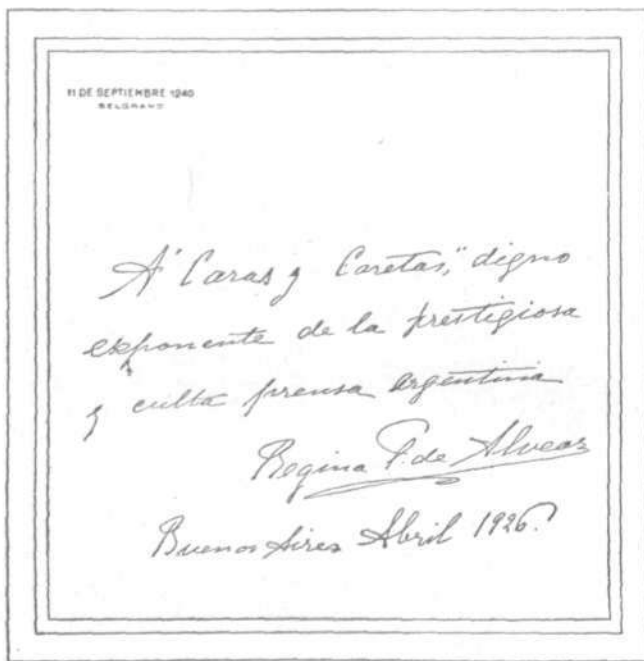 11 DE SEPTIEMBRE 1940
BELGRANO
A "Caras y Caretas," digno
exponente de la prestigiosa
y culta prensa argentina
Regina P. de Alvear
Buenos Aires Abril 1926.